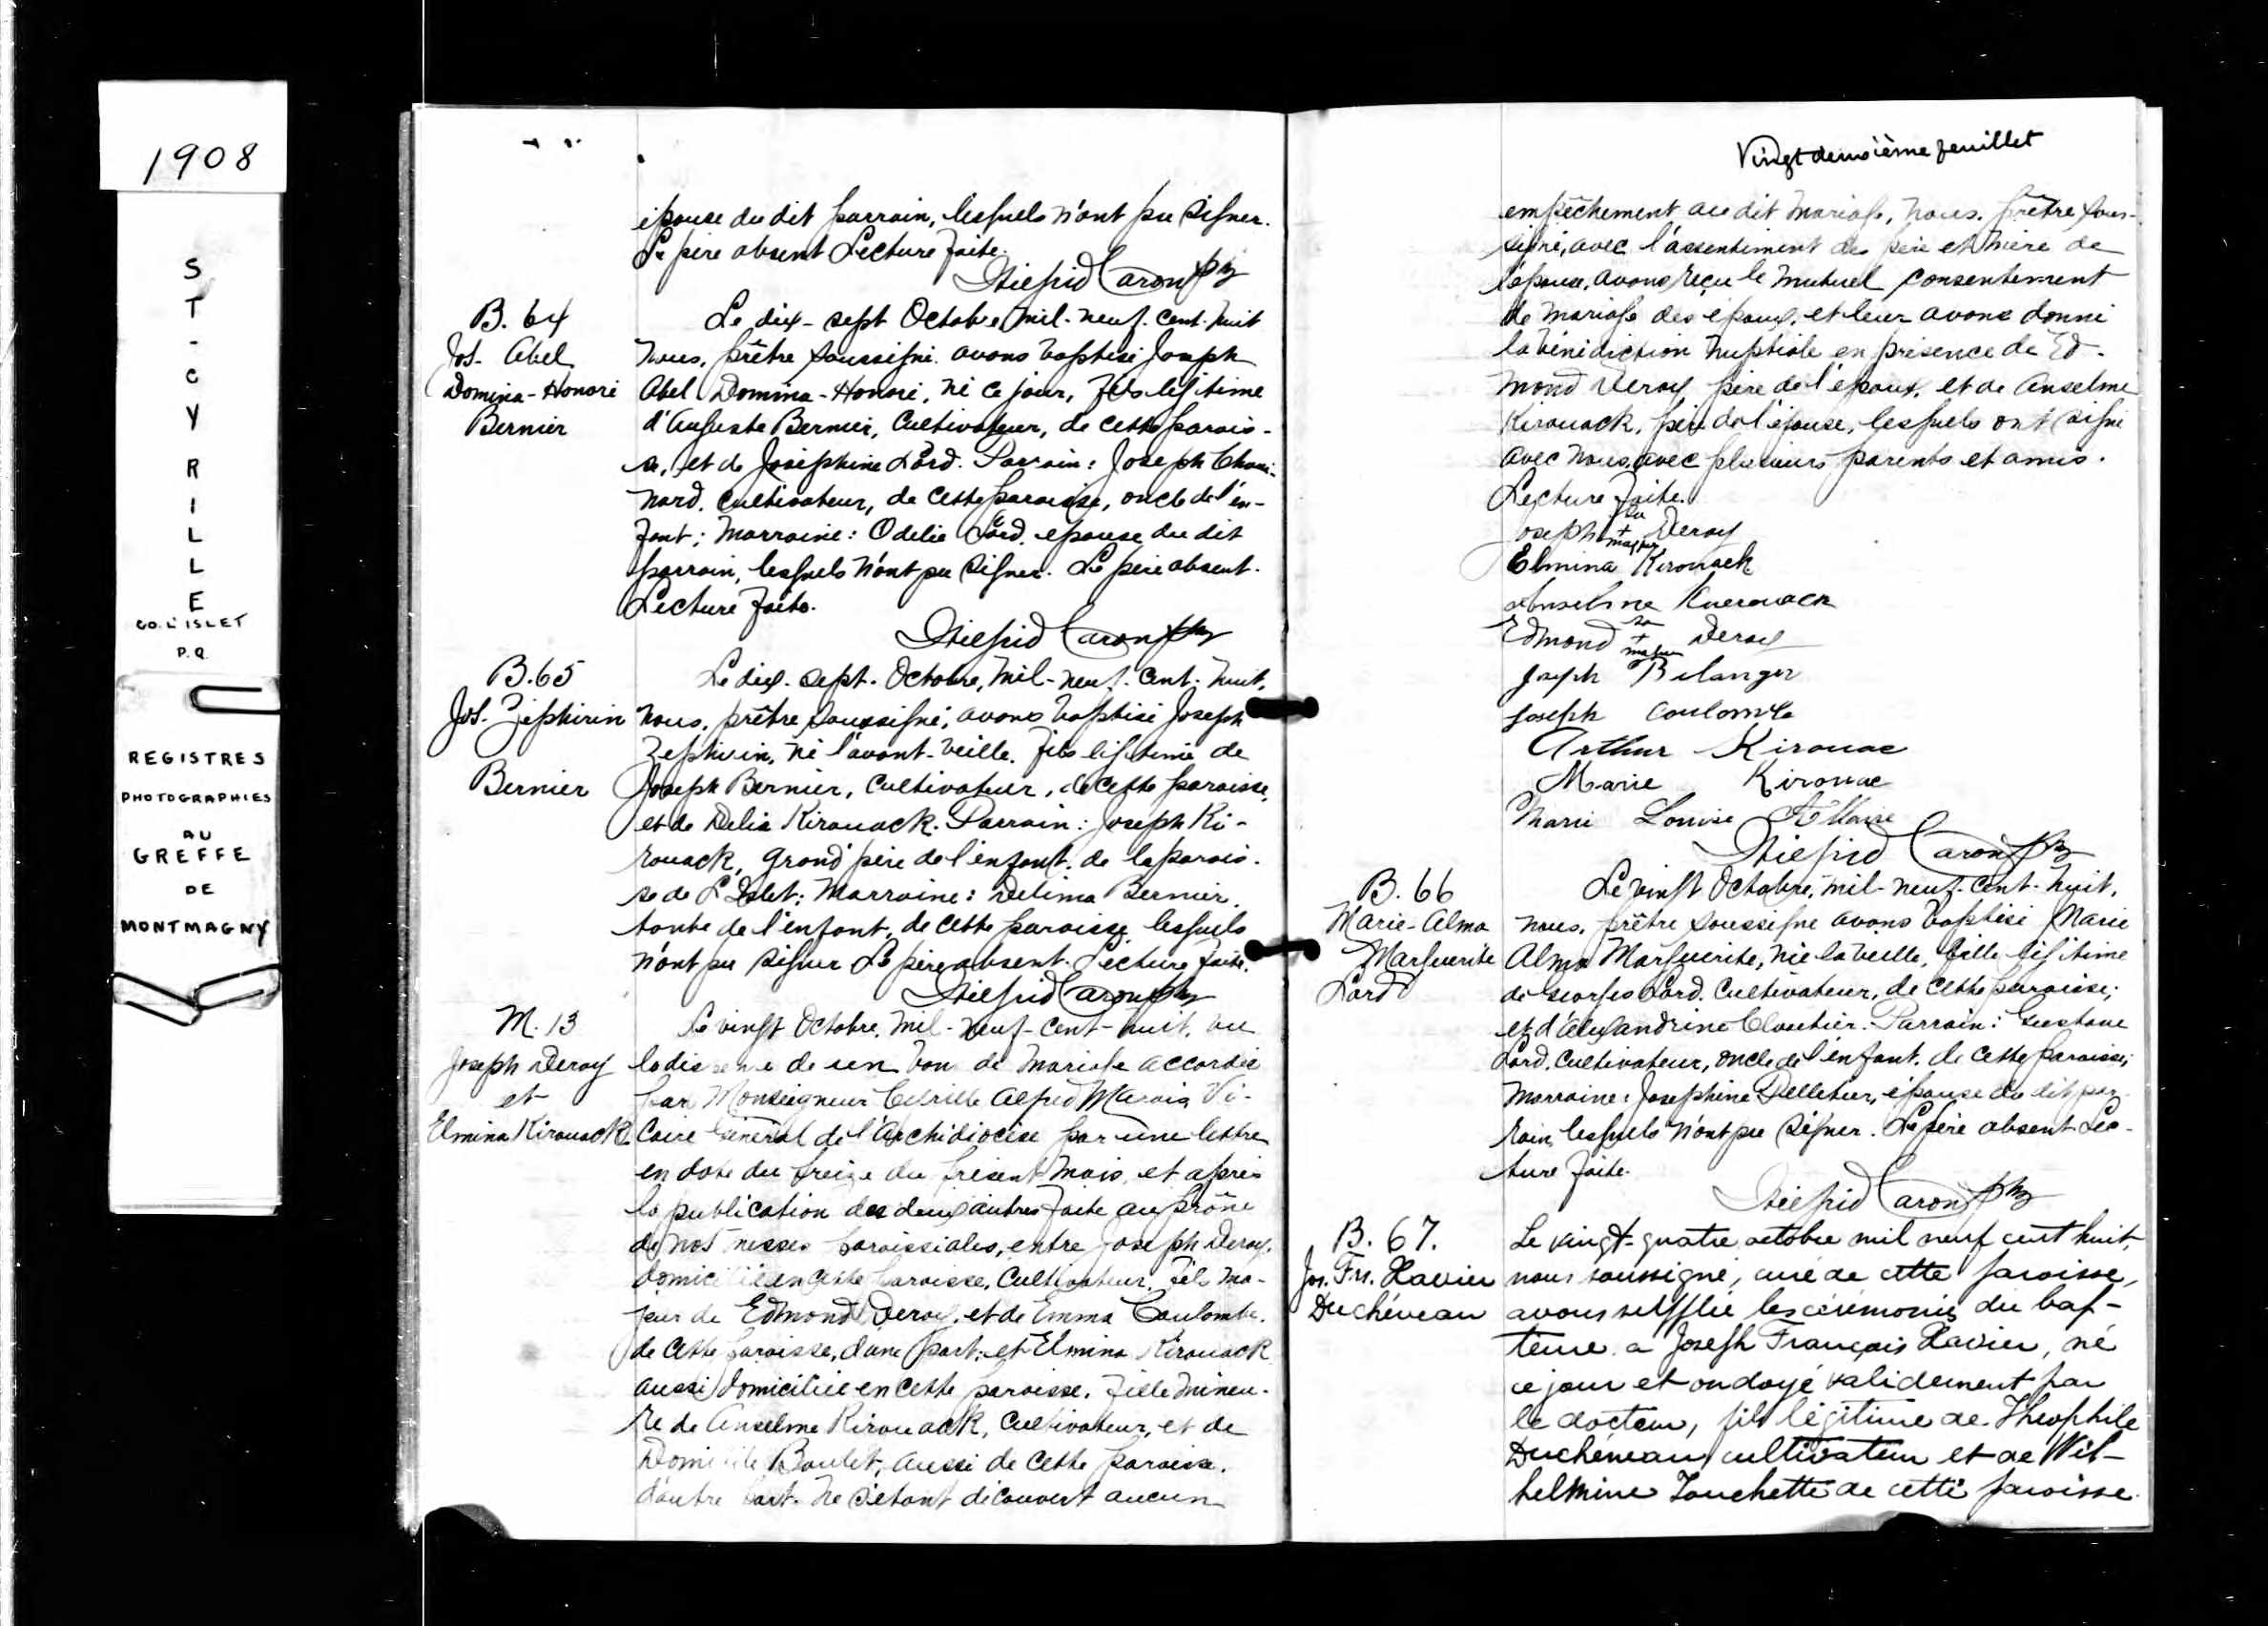 1908
ST-CYRILLE
CO. L'ISLET
P.Q.
REGISTRES
PHOTOGRAPHIES
AU
GREFFE
DE
MONTMAGNY
épouse du dit parrain, lesquels n'ont pu signer.
Le père absent Lecture faite.
Caron ptre
B. 64
Jos. Abel
Domina-Honoré
Bernier
Le dix-sept Octobre mil-neuf-cent-huit
nous, prêtre soussigné avons baptisé Joseph
Abel Domina-Honoré, né ce jour, fils légitime
d'Auguste Bernier, Cultivateur, de cette parois-
se, et de Joséphine Lord. Parrain: Joseph Choui-
nard, cultivateur, de cette paroisse, oncle de l'en-
fant; Marraine: Odelie Lord, épouse du dit
parrain, lesquels n'ont pu signer. Le père absent.
Lecture faite.
Caron ptre
B. 65
Jos. Zéphirin
Bernier
Le dix-sept-Octobre, mil-neuf-cent-huit,
nous, prêtre soussigné, avons baptisé Joseph
Zéphirin, né l'avant-veille, fils légitime de
Joseph Bernier, Cultivateur, de cette paroisse,
et de Delia Kirouack. Parrain: Joseph Ki-
rouack, grand père de l'enfant, de la parois-
se de L'Islet: Marraine: Delima Bernier,
tante de l'enfant, de cette paroisse, lesquels
n'ont pu signer Le père absent. Lecture faite.
Caron ptre
M. 13
Joseph Deroy
et
Elmina Kirouack
Le vingt Octobre, mil-neuf-cent-huit, vu
la dispense de un ban de Mariage accordée
par Monseigneur Alfred Marois Vi-
caire Général de l'Archidiocèse par une lettre
en date du treize du présent mois, et après
la publication des deux autres faite au prône
de nos messes paroissiales, entre Joseph Deroy,
domicilié en cette paroisse, Cultivateur, fils ma-
jeur de Edmond Deroy, et de Emma Coulombe,
de cette paroisse, d'une part; et Elmina Kirouack
aussi domiciliée en cette paroisse, fille mineu-
re de Anselme Kirouack, Cultivateur, et de
Boulet, aussi de cette paroisse,
d'autre part. Ne s'étant découvert aucun
Vingt deuxième feuillet
empêchement au dit Mariage, nous, prêtre sous-
signé, avec l'assentiment des père et mère de
l'épouse, avons reçu le mutuel consentement
de mariage des époux, et leur avons donné
la bénédiction nuptiale en présence de Ed-
mond Deroy père de l'époux, et de Anselme
Kirouack, père de l'épouse, lesquels ont signé
avec nous, avec plusieurs parents et amis.
Lecture faite.
Joseph sa + marque Deroy
Elmina Kirouack
Anselme Kuerouack
Edmond sa + marque Deroy
Joseph Belanger
Joseph Coulombe
Arthur Kirouac
Marie Kirouac
Marie Louise
Caron ptre
B. 66
Marie-Alma
Marguerite
Lord
Le vingt Octobre, mil-neuf-cent-huit,
nous, prêtre soussigné avons baptisé Marie
Alma Marguerite, née la veille, fille légitime
de Georges Lord, Cultivateur, de cette paroisse;
et d'Alexandrine Cloutier. Parrain: Gustave
Lord, Cultivateur, oncle de l'enfant, de cette paroisse;
Marraine: Josephine Pelletier, épouse du dit par-
rain, lesquels n'ont pu signer. Le père absent Lec-
ture faite.
Caron ptre
B. 67.
Jos. Frs. Xavier
Duchéneau
Le vingt-quatre octobre mil neuf cent huit,
nous soussigné, curé de cette paroisse,
avons suppléé les cérémonies du bap-
tême à Joseph François Xavier, né
ce jour et ondoyé validement par
le docteur, fils légitime de Théophile
Duchéneau cultivateur et de Wil-
helmine Touchette de cette paroisse.